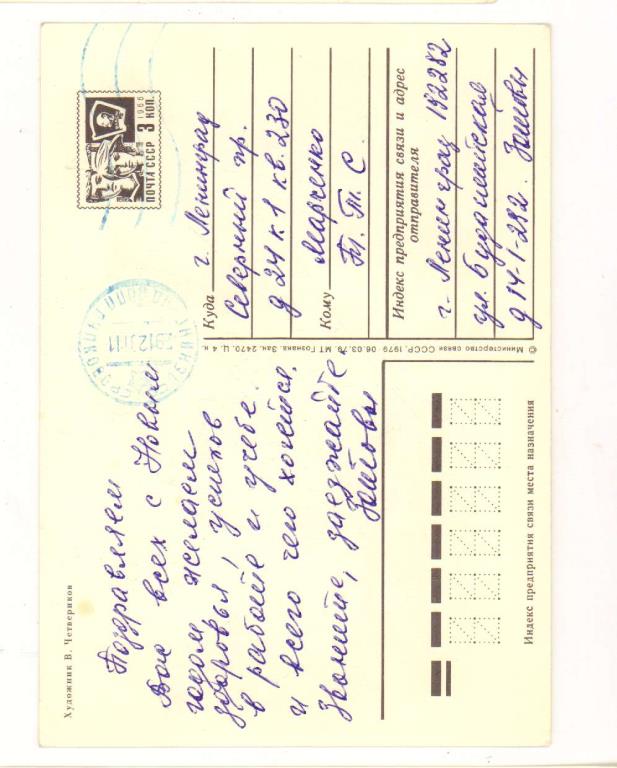 Художник В. Четвериков
Поздравляем
Вас всех с Новым
годом желаем
здоровья! успехов
в работе и учебе.
и всего чего хочется.
Звоните, заезжайте
Зайтовы
ПОЧТА СССР 3 КОП.
1966
ЛЕНИНГРАД
Куда г. Ленинград
Северный пр.
д 24 к 1 кв. 230
Кому Марченко
Т. Т. С.
Индекс предприятия связи и адрес
отправителя
г. Ленинград 192282
ул. Будапештская
д 14-1-282. Зайтовы
© Министерство связи СССР, 1979 06.03.79. МТ Гознака. Зак. 2470. Ц. 4 к.
Индекс предприятия связи места назначения